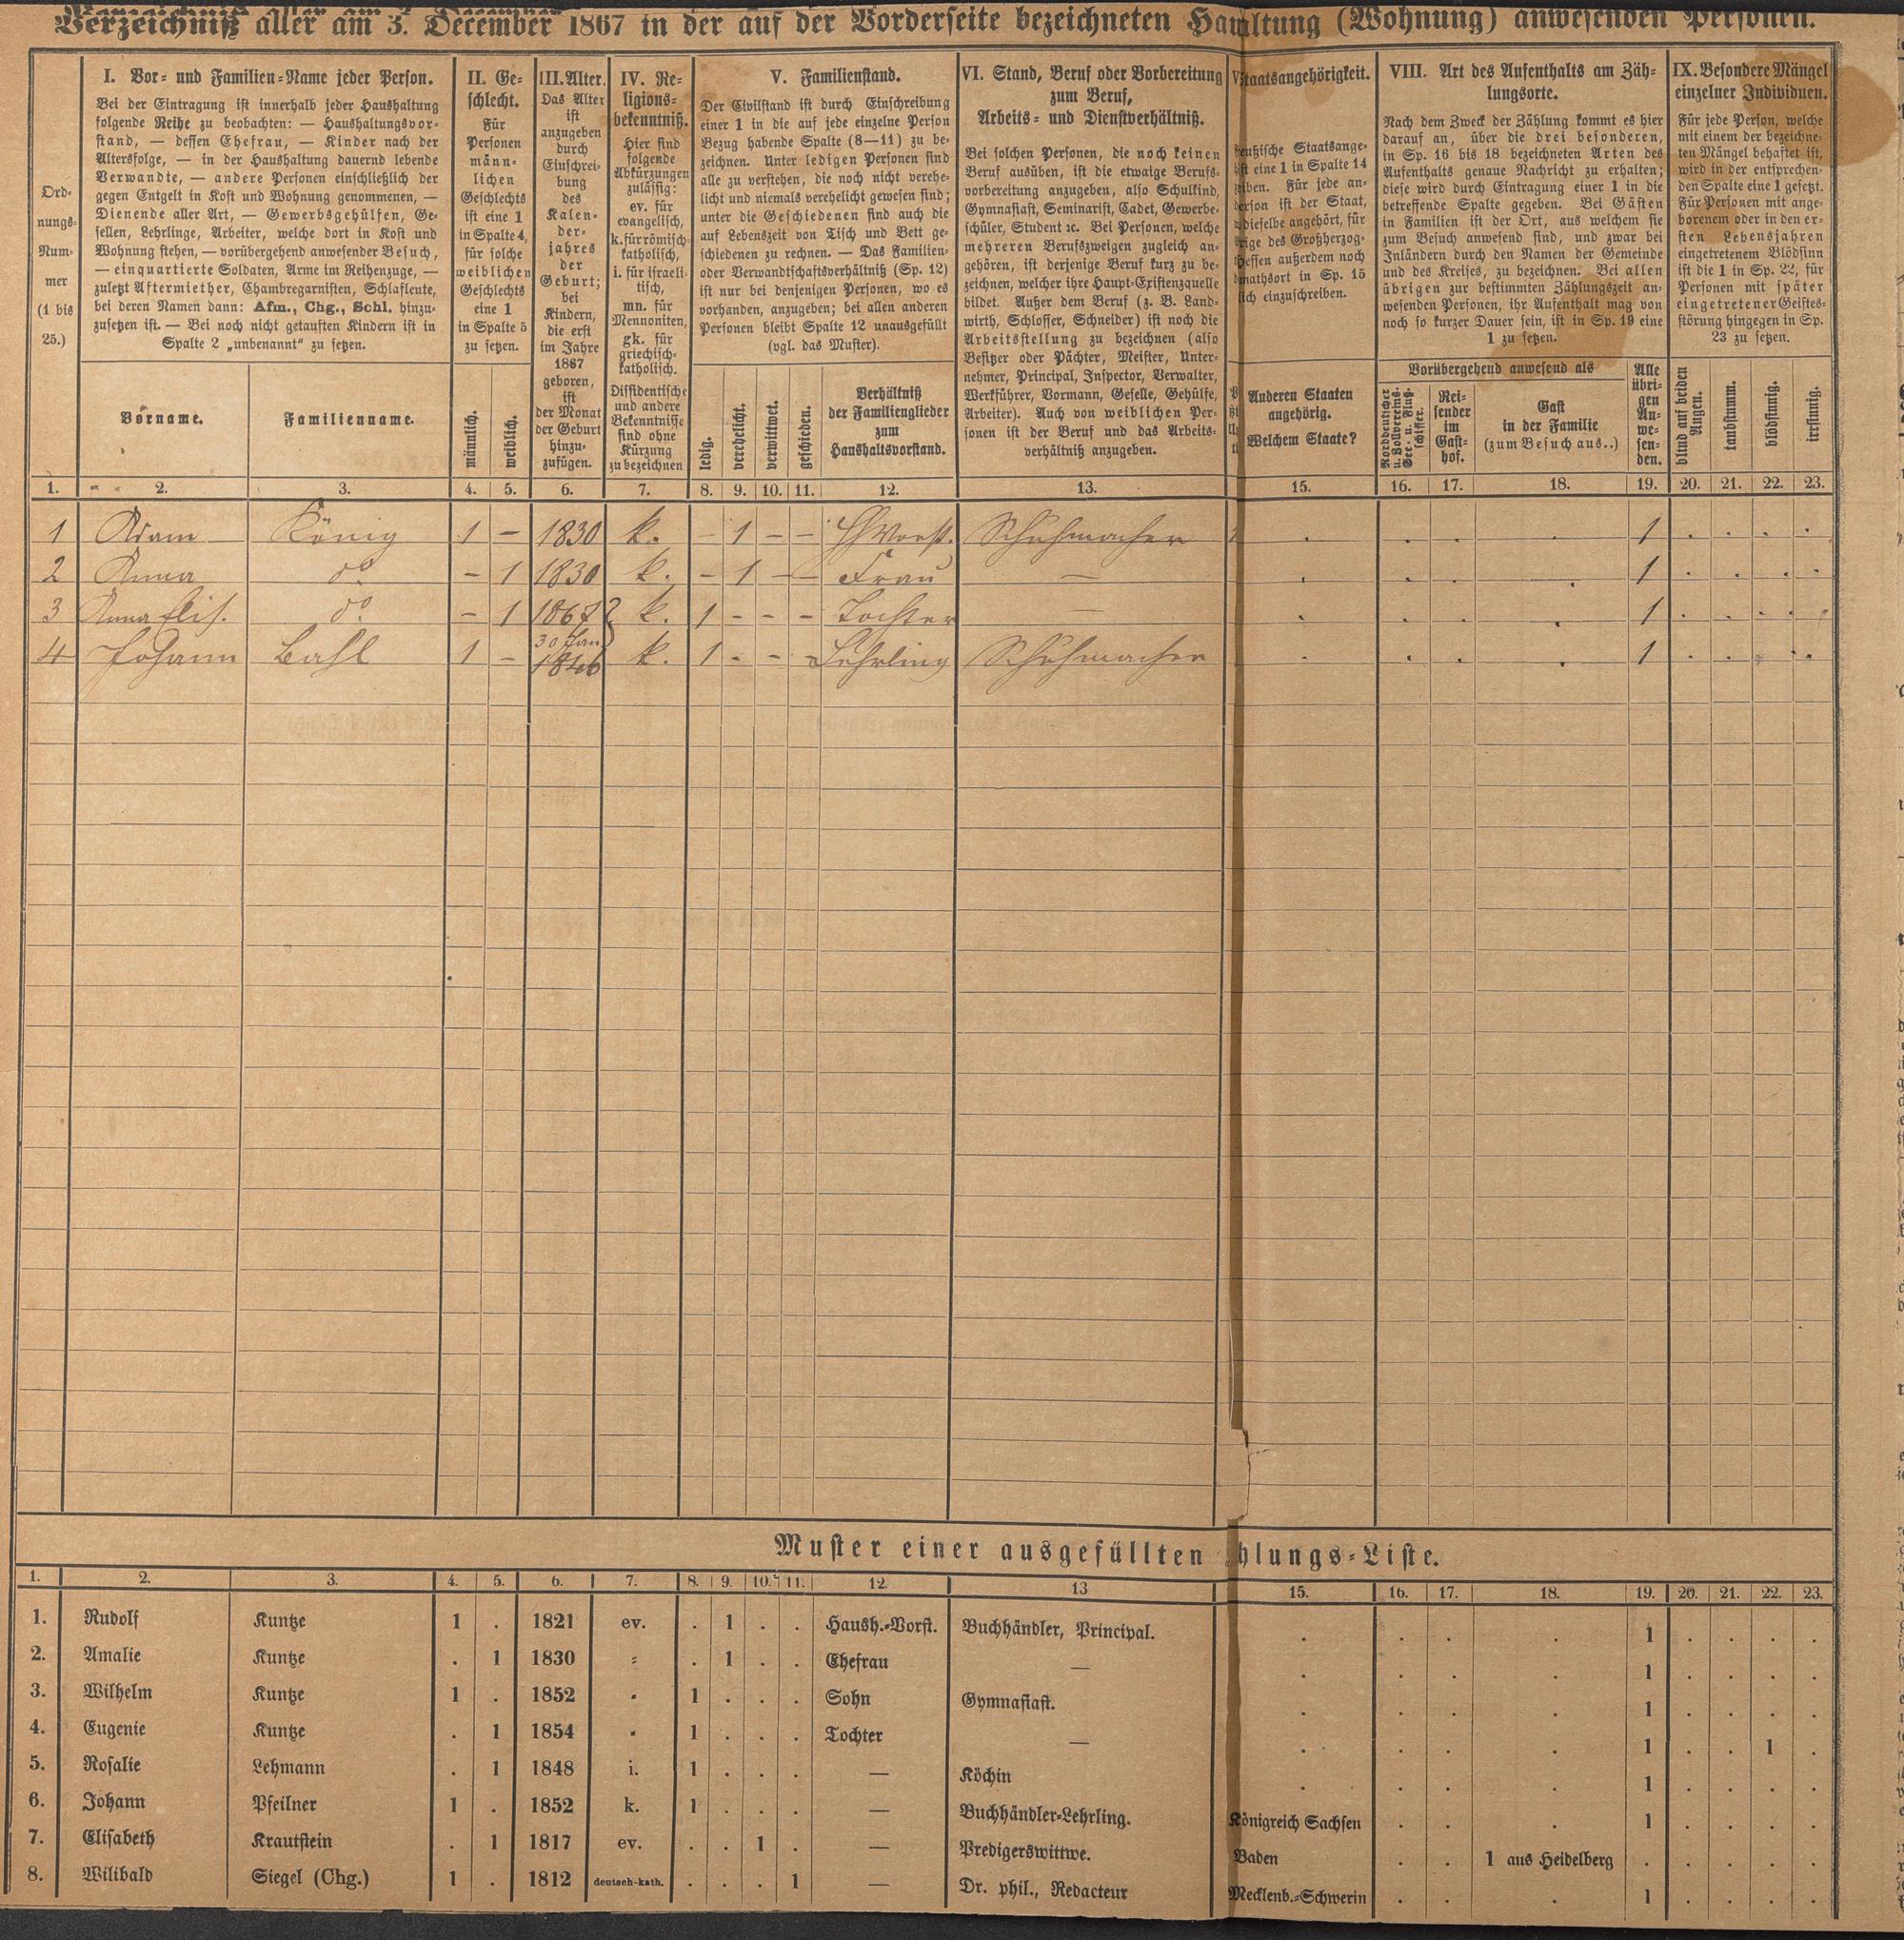 Verzeichniß aller am 3. December 1867 in der auf der Vorderseite bezeichneten Haushaltung (Wohnung) anwesenden Personen.
Ord-
nungs-
Num-
mer
(1 bis
25.)
I. Vor- und Familien-Name jeder Person.
Bei der Eintragung ist innerhalb jeder Haushaltung
folgende Reihe zu beobachten: — Haushaltungsvor-
stand, — dessen Ehefrau, — Kinder nach der
Altersfolge, — in der Haushaltung dauernd lebende
Verwandte, — andere Personen einschließlich der
gegen Entgelt in Kost und Wohnung genommenen, —
Dienende aller Art, — Gewerbsgehülfen, Ge-
sellen, Lehrlinge, Arbeiter, welche dort in Kost und
Wohnung stehen, — vorübergehend anwesender Besuch,
— einquartierte Soldaten, Arme im Reihenzuge, —
zuletzt Aftermiether, Chambregarnisten, Schlafleute,
bei deren Namen dann: Afm., Chg., Schl. hinzu-
zusetzen ist. — Bei noch nicht getauften Kindern ist in
Spalte 2 „unbenannt“ zu setzen.
Vorname.
Familienname.
II. Ge-
schlecht.
Für
Personen
männ-
lichen
Geschlechts
ist eine 1
in Spalte 4,
für solche
weiblichen
Geschlechts
eine 1
in Spalte 5
zu setzen.
männlich.
weiblich.
III. Alter.
Das Alter
ist
anzugeben
durch
Einschrei-
bung
des
Kalen-
der-
jahres
der
Geburt;
bei
Kindern,
die erst
im Jahre
1867
geboren,
ist
der Monat
der Geburt
hinzu-
zufügen.
IV. Re-
ligions-
bekenntniß.
Hier sind
folgende
Abkürzungen
zulässig:
ev. für
evangelisch,
k. für römisch-
katholisch,
i. für israeli-
tisch,
mn. für
Mennoniten,
gk. für
griechisch-
katholisch.
Dissidentische
und andere
Bekenntnisse
sind ohne
Kürzung
zu bezeichnen
V. Familienstand.
Der Civilstand ist durch Einschreibung
einer 1 in die auf jede einzelne Person
Bezug habende Spalte (8—11) zu be-
zeichnen. Unter ledigen Personen sind
alle zu verstehen, die noch nicht verehe-
licht und niemals verehelicht gewesen sind;
unter die Geschiedenen sind auch die
auf Lebenszeit von Tisch und Bett ge-
schiedenen zu rechnen. — Das Familien-
oder Verwandtschaftsverhältniß (Sp. 12)
ist nur bei denjenigen Personen, wo es
vorhanden, anzugeben; bei allen anderen
Personen bleibt Spalte 12 unausgefüllt
(vgl. das Muster).
ledig.
verehelicht.
verwittwet.
geschieden.
Verhältniß
der Familienglieder
zum
Haushaltsvorstand.
VI. Stand, Beruf oder Vorbereitung
zum Beruf,
Arbeits- und Dienstverhältniß.
Bei solchen Personen, die noch keinen
Beruf ausüben, ist die etwaige Berufs-
vorbereitung anzugeben, also Schulkind,
Gymnasiast, Seminarist, Cadet, Gewerbe-
schüler, Student ꝛc. Bei Personen, welche
mehreren Berufszweigen zugleich an-
gehören, ist derjenige Beruf kurz zu be-
zeichnen, welcher ihre Haupt-Existenzquelle
bildet. Außer dem Beruf (z. B. Land-
wirth, Schlosser, Schneider) ist noch die
Arbeitsstellung zu bezeichnen (also
Besitzer oder Pächter, Meister, Unter-
nehmer, Principal, Inspector, Verwalter,
Werkführer, Vormann, Geselle, Gehülfe,
Arbeiter). Auch von weiblichen Per-
sonen ist der Beruf und das Arbeits-
verhältniß anzugeben.
Staatsangehörigkeit.
Staatsange-
eine 1 in Spalte 14
Für jede an-
ist der Staat,
dieselbe angehört, für
des Großherzog-
Hessen außerdem noch
in Sp. 15
einzuschreiben.
Anderen Staaten
angehörig.
Welchem Staate?
VIII. Art des Aufenthalts am Zäh-
lungsorte.
Nach dem Zweck der Zählung kommt es hier
darauf an, über die drei besonderen,
in Sp. 16 bis 18 bezeichneten Arten des
Aufenthalts genaue Nachricht zu erhalten;
diese wird durch Eintragung einer 1 in die
betreffende Spalte gegeben. Bei Gästen
in Familien ist der Ort, aus welchem sie
zum Besuch anwesend sind, und zwar bei
Inländern durch den Namen der Gemeinde
und des Kreises, zu bezeichnen. Bei allen
übrigen zur bestimmten Zählungszeit an-
wesenden Personen, ihr Aufenthalt mag von
noch so kurzer Dauer sein, ist in Sp. 19 eine
1 zu setzen.
Vorübergehend anwesend als
Norddeutscher
u. Vollvereins-
See- u. Fluß-
schiffer.
Rei-
sender
im
Gast-
hof.
Gast
in der Familie
(zum Besuch aus..)
Alle
übri-
gen
An-
we-
sen-
den.
IX. Besondere Mängel
einzelner Individuen.
Für jede Person, welche
mit einem der bezeichne-
ten Mängel behaftet ist,
wird in der entsprechen-
den Spalte eine 1 gesetzt.
Für Personen mit ange-
borenem oder in den er-
sten Lebensjahren
eingetretenem Blödsinn
ist die 1 in Sp. 22, für
Personen mit später
eingetretener Geistes-
störung hingegen in Sp.
23 zu setzen.
blind auf beiden
Augen.
taubstumm.
blödsinnig.
irrsinnig.
1. 2. 3. 4. 5. 6. 7. 8. 9. 10. 11. 12. 13. 15. 16. 17. 18. 19. 20. 21. 22. 23.
1 Adam König 1 – 1830 k. – 1 – – HVorst. Schuhmacher . . . . 1 . . . .
2 Anna do – 1 1830 k. – 1 – – Frau — . . . . 1 . . . .
3 Anna Elis. do – 1 1867 k. 1 – – – Tochter — . . . . 1 . . . .
30 Jan
4 Johann Bahl 1 – 1846 k. 1 – – – Lehrling Schuhmacher . . . . 1 . . . .
Muster einer ausgefüllten hlungs-Liste.
1. 2. 3. 4. 5. 6. 7. 8. 9. 10. 11. 12. 13 15. 16. 17. 18. 19. 20. 21. 22. 23.
1. Rudolf Kuntze 1 . 1821 ev. . 1 . . Haush.-Vorst. Buchhändler, Principal. . . . . 1 . . . .
2. Amalie Kuntze . 1 1830 = . 1 . . Ehefrau — . . . . 1 . . . .
3. Wilhelm Kuntze 1 . 1852 " 1 . . . Sohn Gymnasiast. . . . . 1 . . . .
4. Eugenie Kuntze . 1 1854 " 1 . . . Tochter — . . . . 1 . . 1 .
5. Rosalie Lehmann . 1 1848 i. 1 . . . — Köchin . . . . 1 . . . .
6. Johann Pfeilner 1 . 1852 k. 1 . . . — Buchhändler-Lehrling. Königreich Sachsen . . . 1 . . . .
7. Elisabeth Krautstein . 1 1817 ev. . . 1 . — Predigerswittwe. Baden . . 1 aus Heidelberg . . . . .
8. Wilibald Siegel (Chg.) 1 . 1812 deutsch-kath. . . . 1 — Dr. phil., Redacteur Mecklenb.-Schwerin . . . 1 . . . .